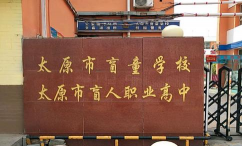 太原市盲童学校
太原市盲人职业高中